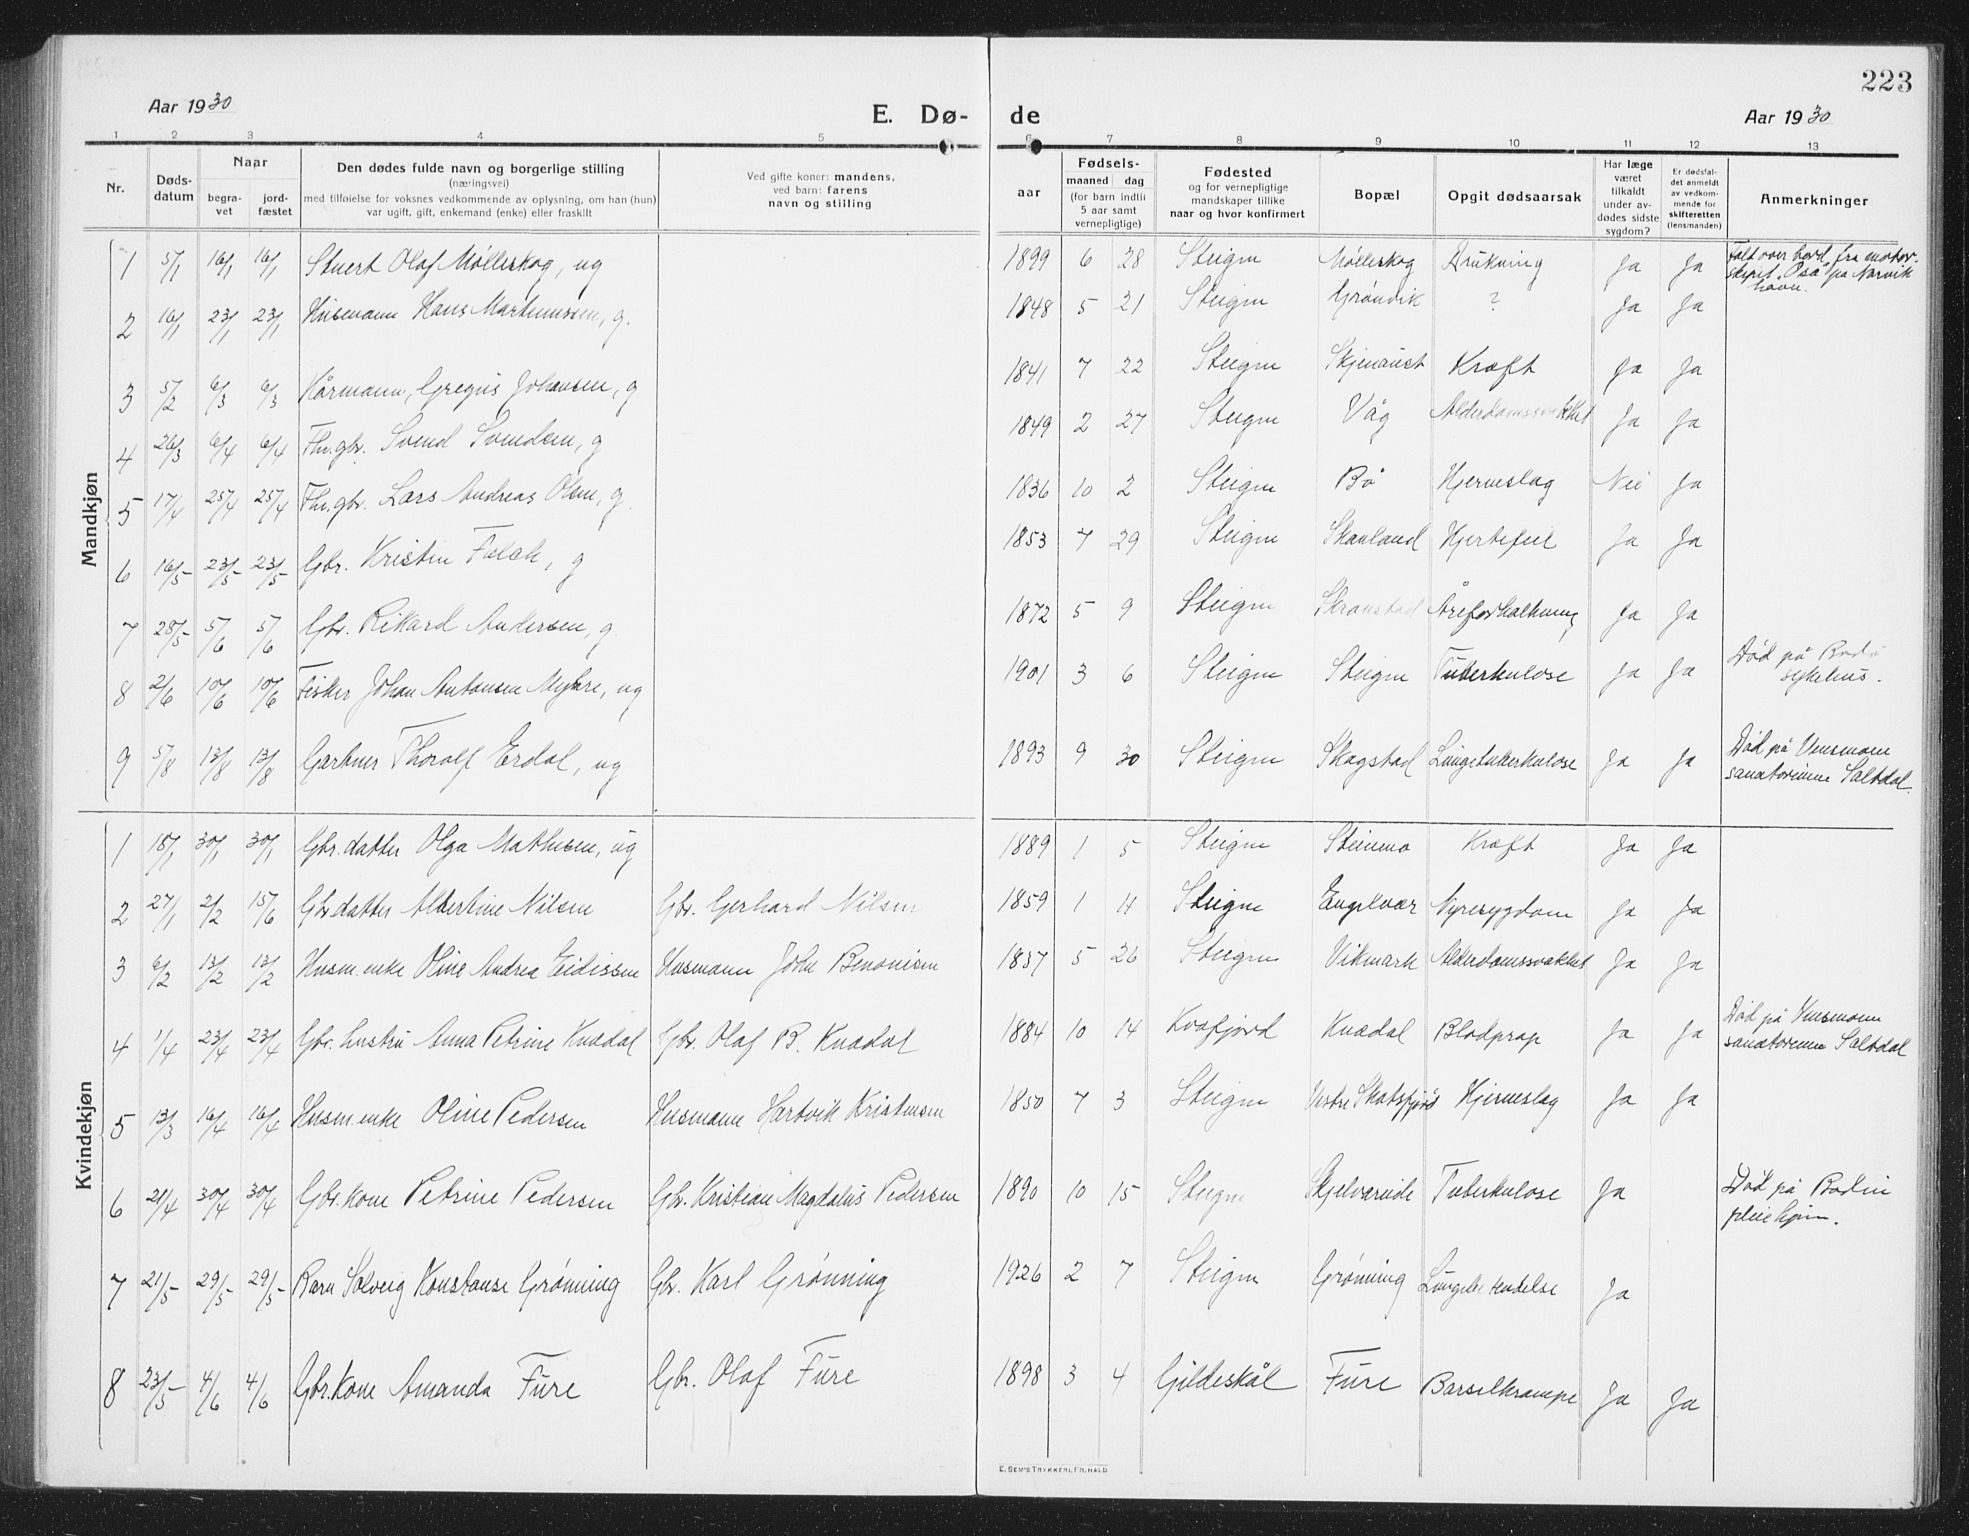 223
Aar 1930 E. Dø- de Aar 1930
1 2 3 4 5 6 7 8 9 10 11 12 13
Nr. Døds-datum Naar begra-vet jord-fæstet Den dødes fulde navn og borgerlige stilling (næringsvei) med tilføielse for voksnes vedkommende av oplysning, om han (hun) var ugift, gift, enkemand (enke) eller fraskilt Ved gifte koner: mandens, ved barn: farens navn og stilling aar Fødsels- maaned dag (for barn indtil 5 aar samt vernepligtige) Fødested og for vernepligtige mandskaper tillike naar og hvor konfirmert Bopæl Opgit dødsaarsak Har læge været tilkaldt under av-dødes sidste sygdom? Er dødsfal-det anmeldt av vedkom-mende for skifteretten (lensmanden) Anmerkninger
Mandkjøn
1 5/1 16/1 16/1 Stuert Olaf Møllerskog, ug 1899 6 28 Steigen Møllerskog Drukning Ja Ja Falt over bord fra motor-
skipet "Osa" på Narvik
havn.
2 16/1 23/1 23/1 Husmann Hans Martinussen, g. 1848 5 21 Steigen Grønvik ? Ja Ja
3 5/2 6/3 6/3 Kårmann, Gregus Johansen, g 1841 7 22 Steigen Kræft Ja Ja
4 26/3 6/4 6/4 Fhn.gbr. Svend Svendsen, g 1849 2 27 Steigen Våg Alderdomssvakhet Ja Ja
5 17/4 25/4 25/4 Fhn.gbr. Lars Andreas Olsen, g. 1836 10 2 Steigen Bø Hjerneslag Nei Ja
6 16/5 23/5 23/5 Gbr. Kristen Falch, g 1853 7 29 Steigen Skanland Hjertefeil Ja Ja
7 28/5 5/6 5/6 Gbr. Rikard Andersen, g. 1872 5 9 Steigen Skranstad Åreforkalkning Ja Ja
8 2/6 10/6 10/6 Fisker Johan Antonsen Myhre, ug 1901 3 6 Steigen Steigen Tuberkulose Ja Ja Død på Bodø
sykehus.
9 5/8 13/8 13/8 Gartner Thorolf Erdal, ug 1893 9 30 Steigen Skagstad Lungetuberkulose Ja Ja Død på Vensmoen
sanatorium Saltdal.
Kvindekjøn
1 18/1 30/1 30/1 Gbr.datter Olga Mathisen, ug 1889 1 5 Steigen Steinmo Kræft Ja Ja
2 27/1 2/2 15/6 Gbr.datter Albertine Nilsen Gbr. Gerhard Nilsen 1859 1 14 Steigen Engelvær Nyresygdom Ja Ja
3 6/2 13/2 13/2 Husm.enke Oline Andrea Eidissen Husmann John Benonisen 1837 5 26 Steigen Vikmark Alderdomssvakhet Ja Ja
4 1/4 23/4 23/4 Gbr. hustru Anna Petrine Knædal Gbr. Olaf B. Knædal 1884 10 14 Kvæfjord Knædal Blodprop Ja Ja Død på Vensmoen
sanatorium Saltdal
5 13/3 16/4 16/4 Husm.enke Oline Pedersen Husmann Hartvik Kristensen 1850 7 3 Steigen Vestre Skotsfjord Hjerneslag Ja Ja
6 21/4 30/4 30/4 Gbr.kone Petrine Pedersen Gbr. Kristian Magdalus Pedersen 1890 10 15 Steigen Skjelvareide Tuberkulose Ja Død på Bodin
pleiehjem.
7 21/5 29/5 29/5 Barn Solveig Konstanse Grønning Gbr. Karl Grønning 1926 2 7 Steigen Grønning Lungebetendelse Ja
8 23/5 4/6 4/6 Gbr.kone Amanda Fure Gbr. Olaf Fure 1898 3 4 Gildeskål Fure Barselkrampe Ja Ja
E. SEM'S TRYKKERI, FR.HALD